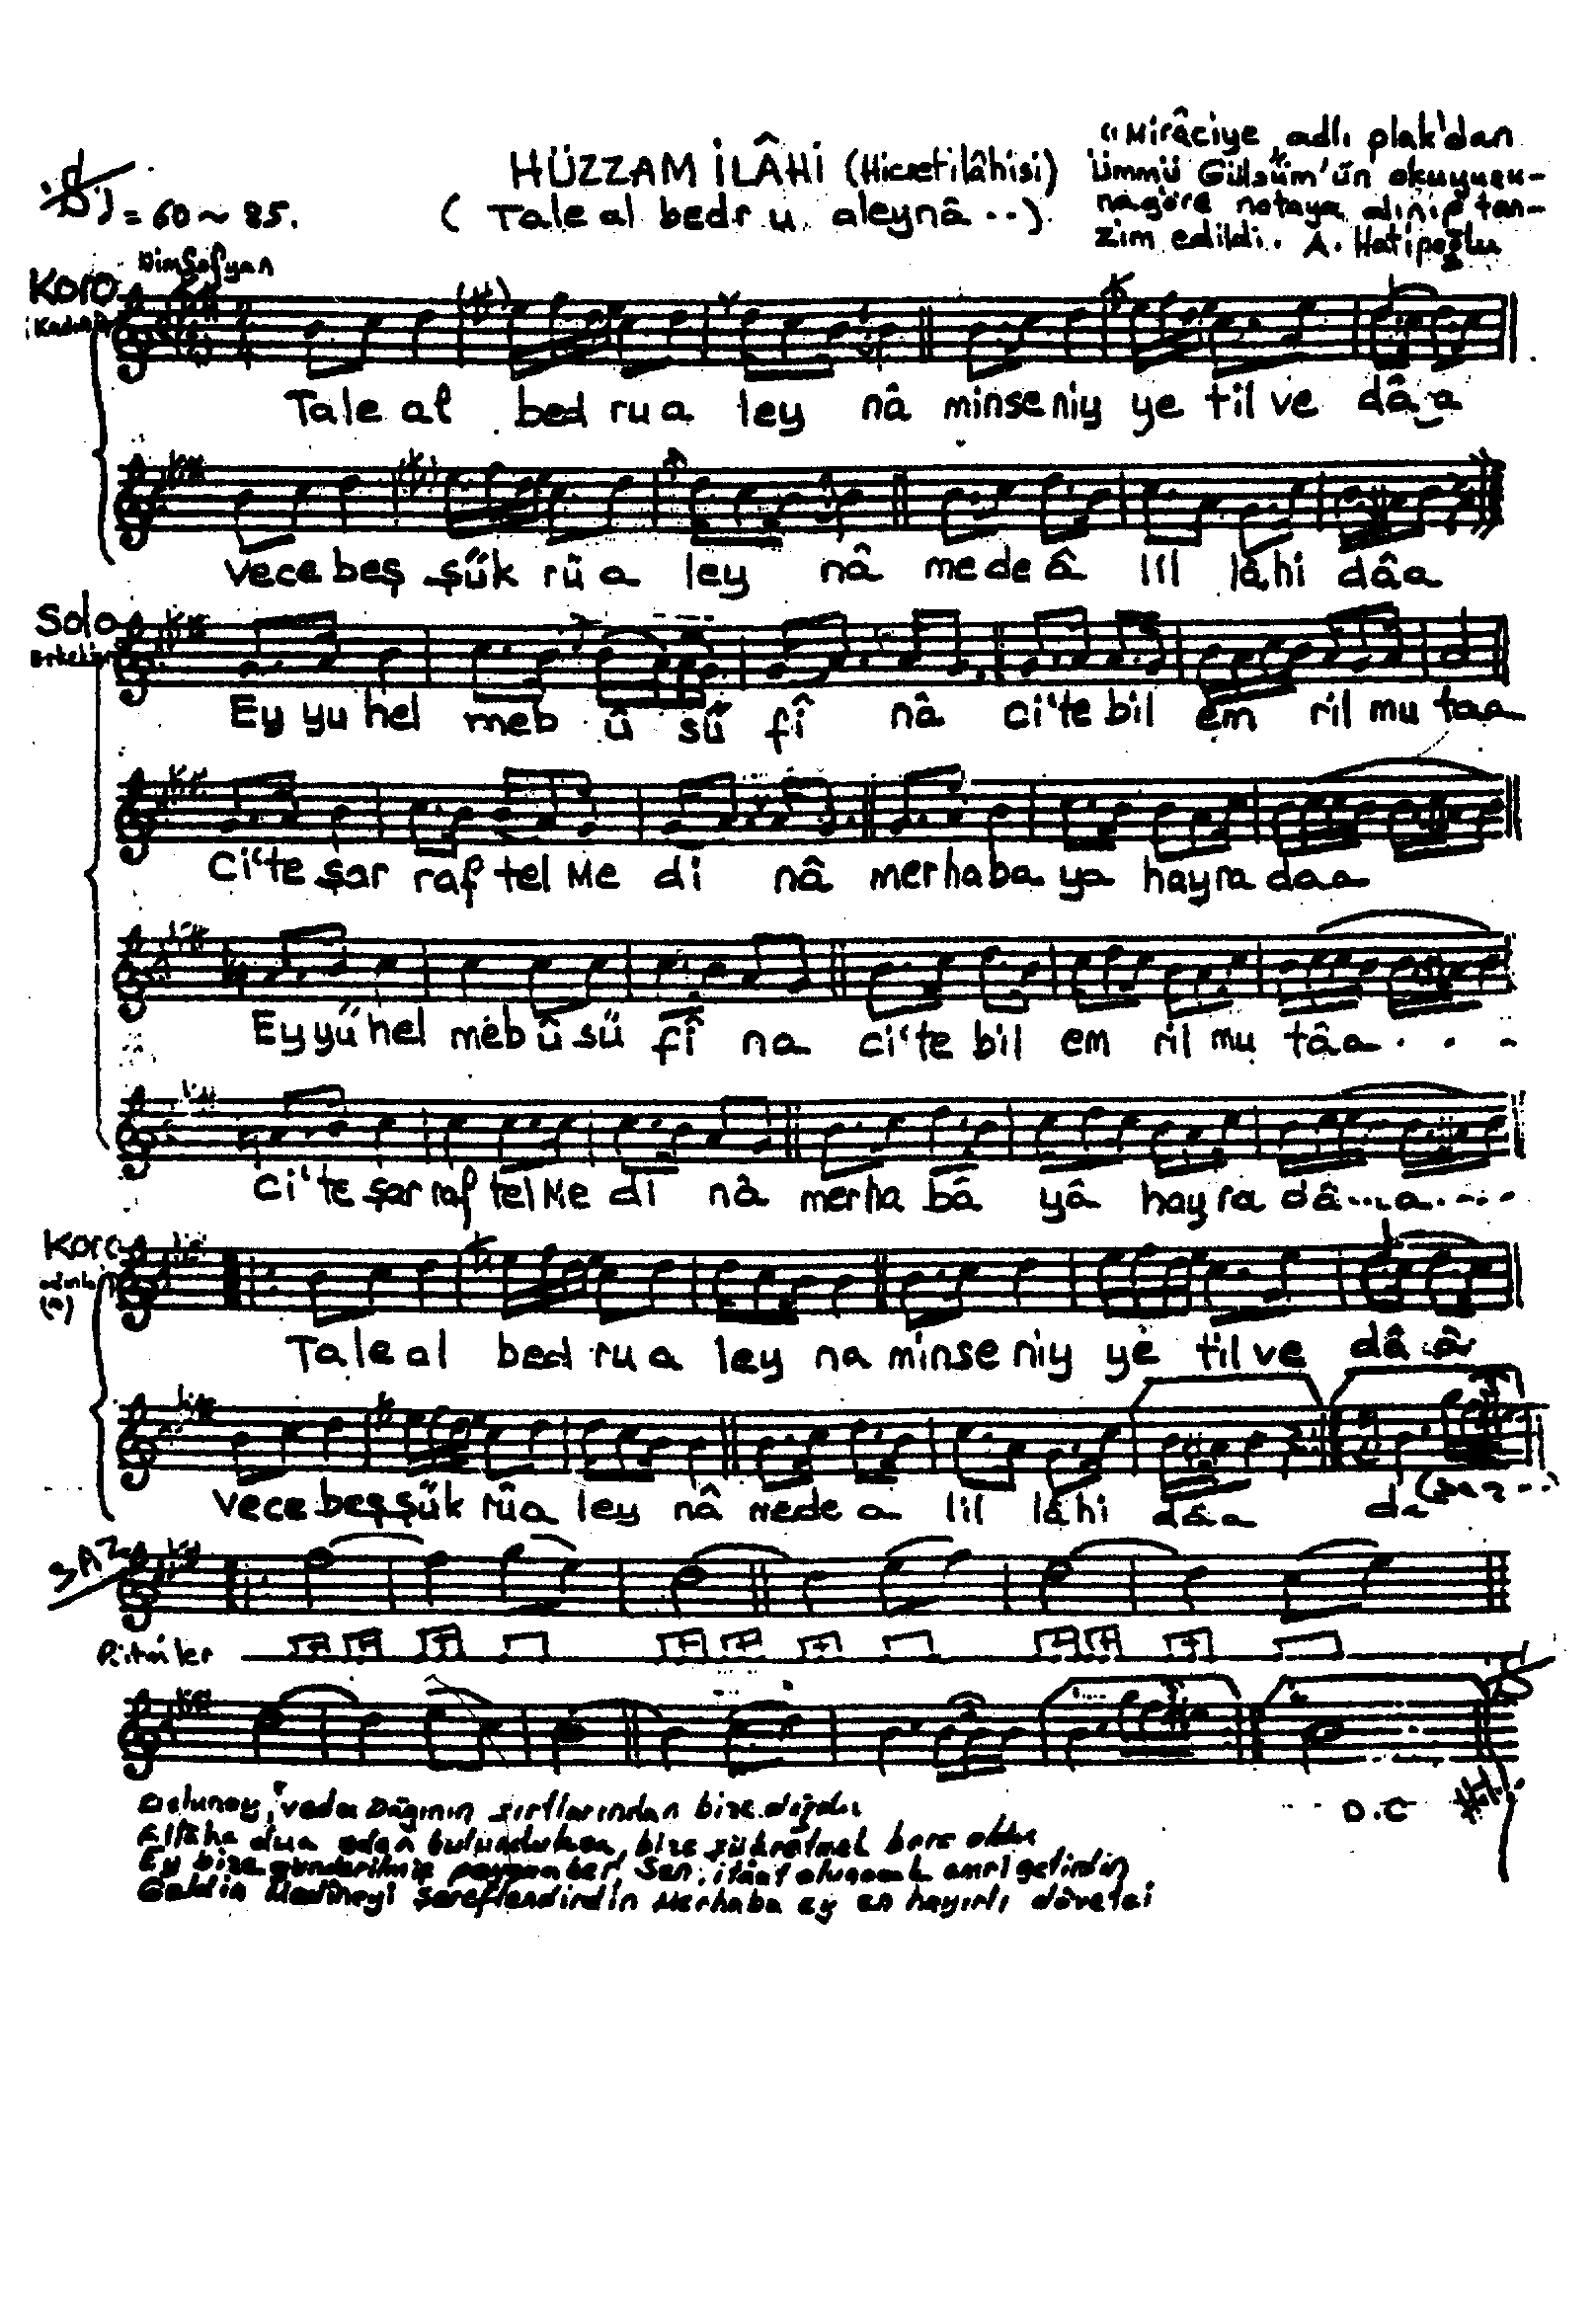 HÜZZAM İLÂHİ (Hicret ilâhisi)
( Tale al bedr u aleynâ ..)
"Mirâciye adlı plak'dan
Ümmü Gülsüm'ün okuyuşu-
na göre notaya alınıp tan-
zim edildi. A. Hatipoğlu
= 60 ~ 85.
Nimsofyan
Koro
Tale al bed ru a ley nâ minse niy ye til ve dâ a
vece beş şük rü a ley nâ me de â lil lâhi dâa
Solo
Ey yu hel meb û sü fî nâ ci'te bil em ril mu taa
Ci'te şar raf tel Me di nâ merhaba ya hayra daa
Ey yü hel meb û sü fî na ci'te bil em ril mu tâa . . -
Ci'te şar raf tel Me di nâ merha bâ yâ hay ra dâ...a....
Koro
Tale al bed ru a ley na minse niy ye til ve dâ â
vece beş şük rüa ley nâ mede a lil lâhi dâa da (saz...)
SAZ
Ritmler
D.C
Dolunay, veda Dağının sırtlarından bize doğdu
Allâha dua eden bulundukca, bize şükretmek borc oldu
Ey bize gönderilmiş peygamber, Sen, itâat olunacak emri getirdin
Geldin Medîneyi Şereflendirdin Merhaba ey en hayırlı dâvetci